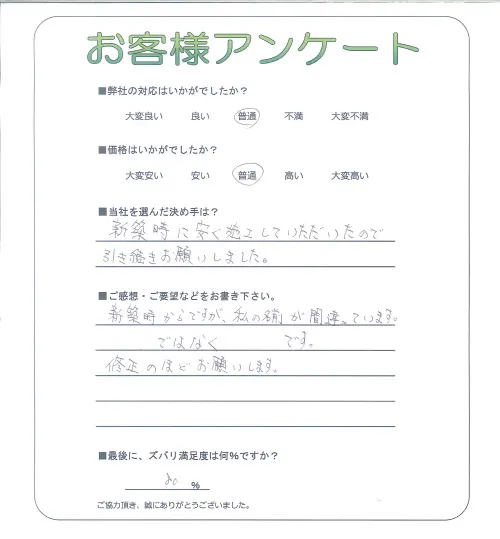 お客様アンケート
■弊社の対応はいかがでしたか？
大変良い 良い 普通 不満 大変不満
■価格はいかがでしたか？
大変安い 安い 普通 高い 大変高い
■当社を選んだ決め手は？
新築時に安く施工していただいたので
引き続きお願いしました。
■ご感想・ご要望などをお書き下さい。
新築時からですが、私の名前が間違っています。
ではなく です。
修正のほどお願いします。
■最後に、ズバリ満足度は何%ですか？
%
ご協力頂き、誠にありがとうございました。